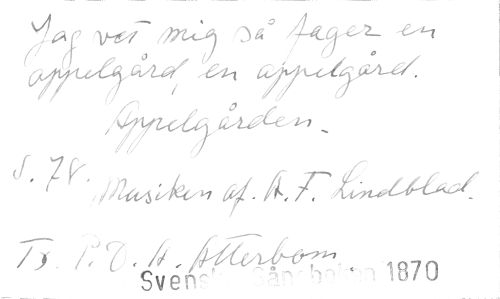 Jag vet mig så fager en
appelgård, en appelgård.
Appelgården.
S. 78.
Musiken af. A. F. Lindblad.
Tx. P. D. A. Atterbom.
Svensk Sångboken 1870